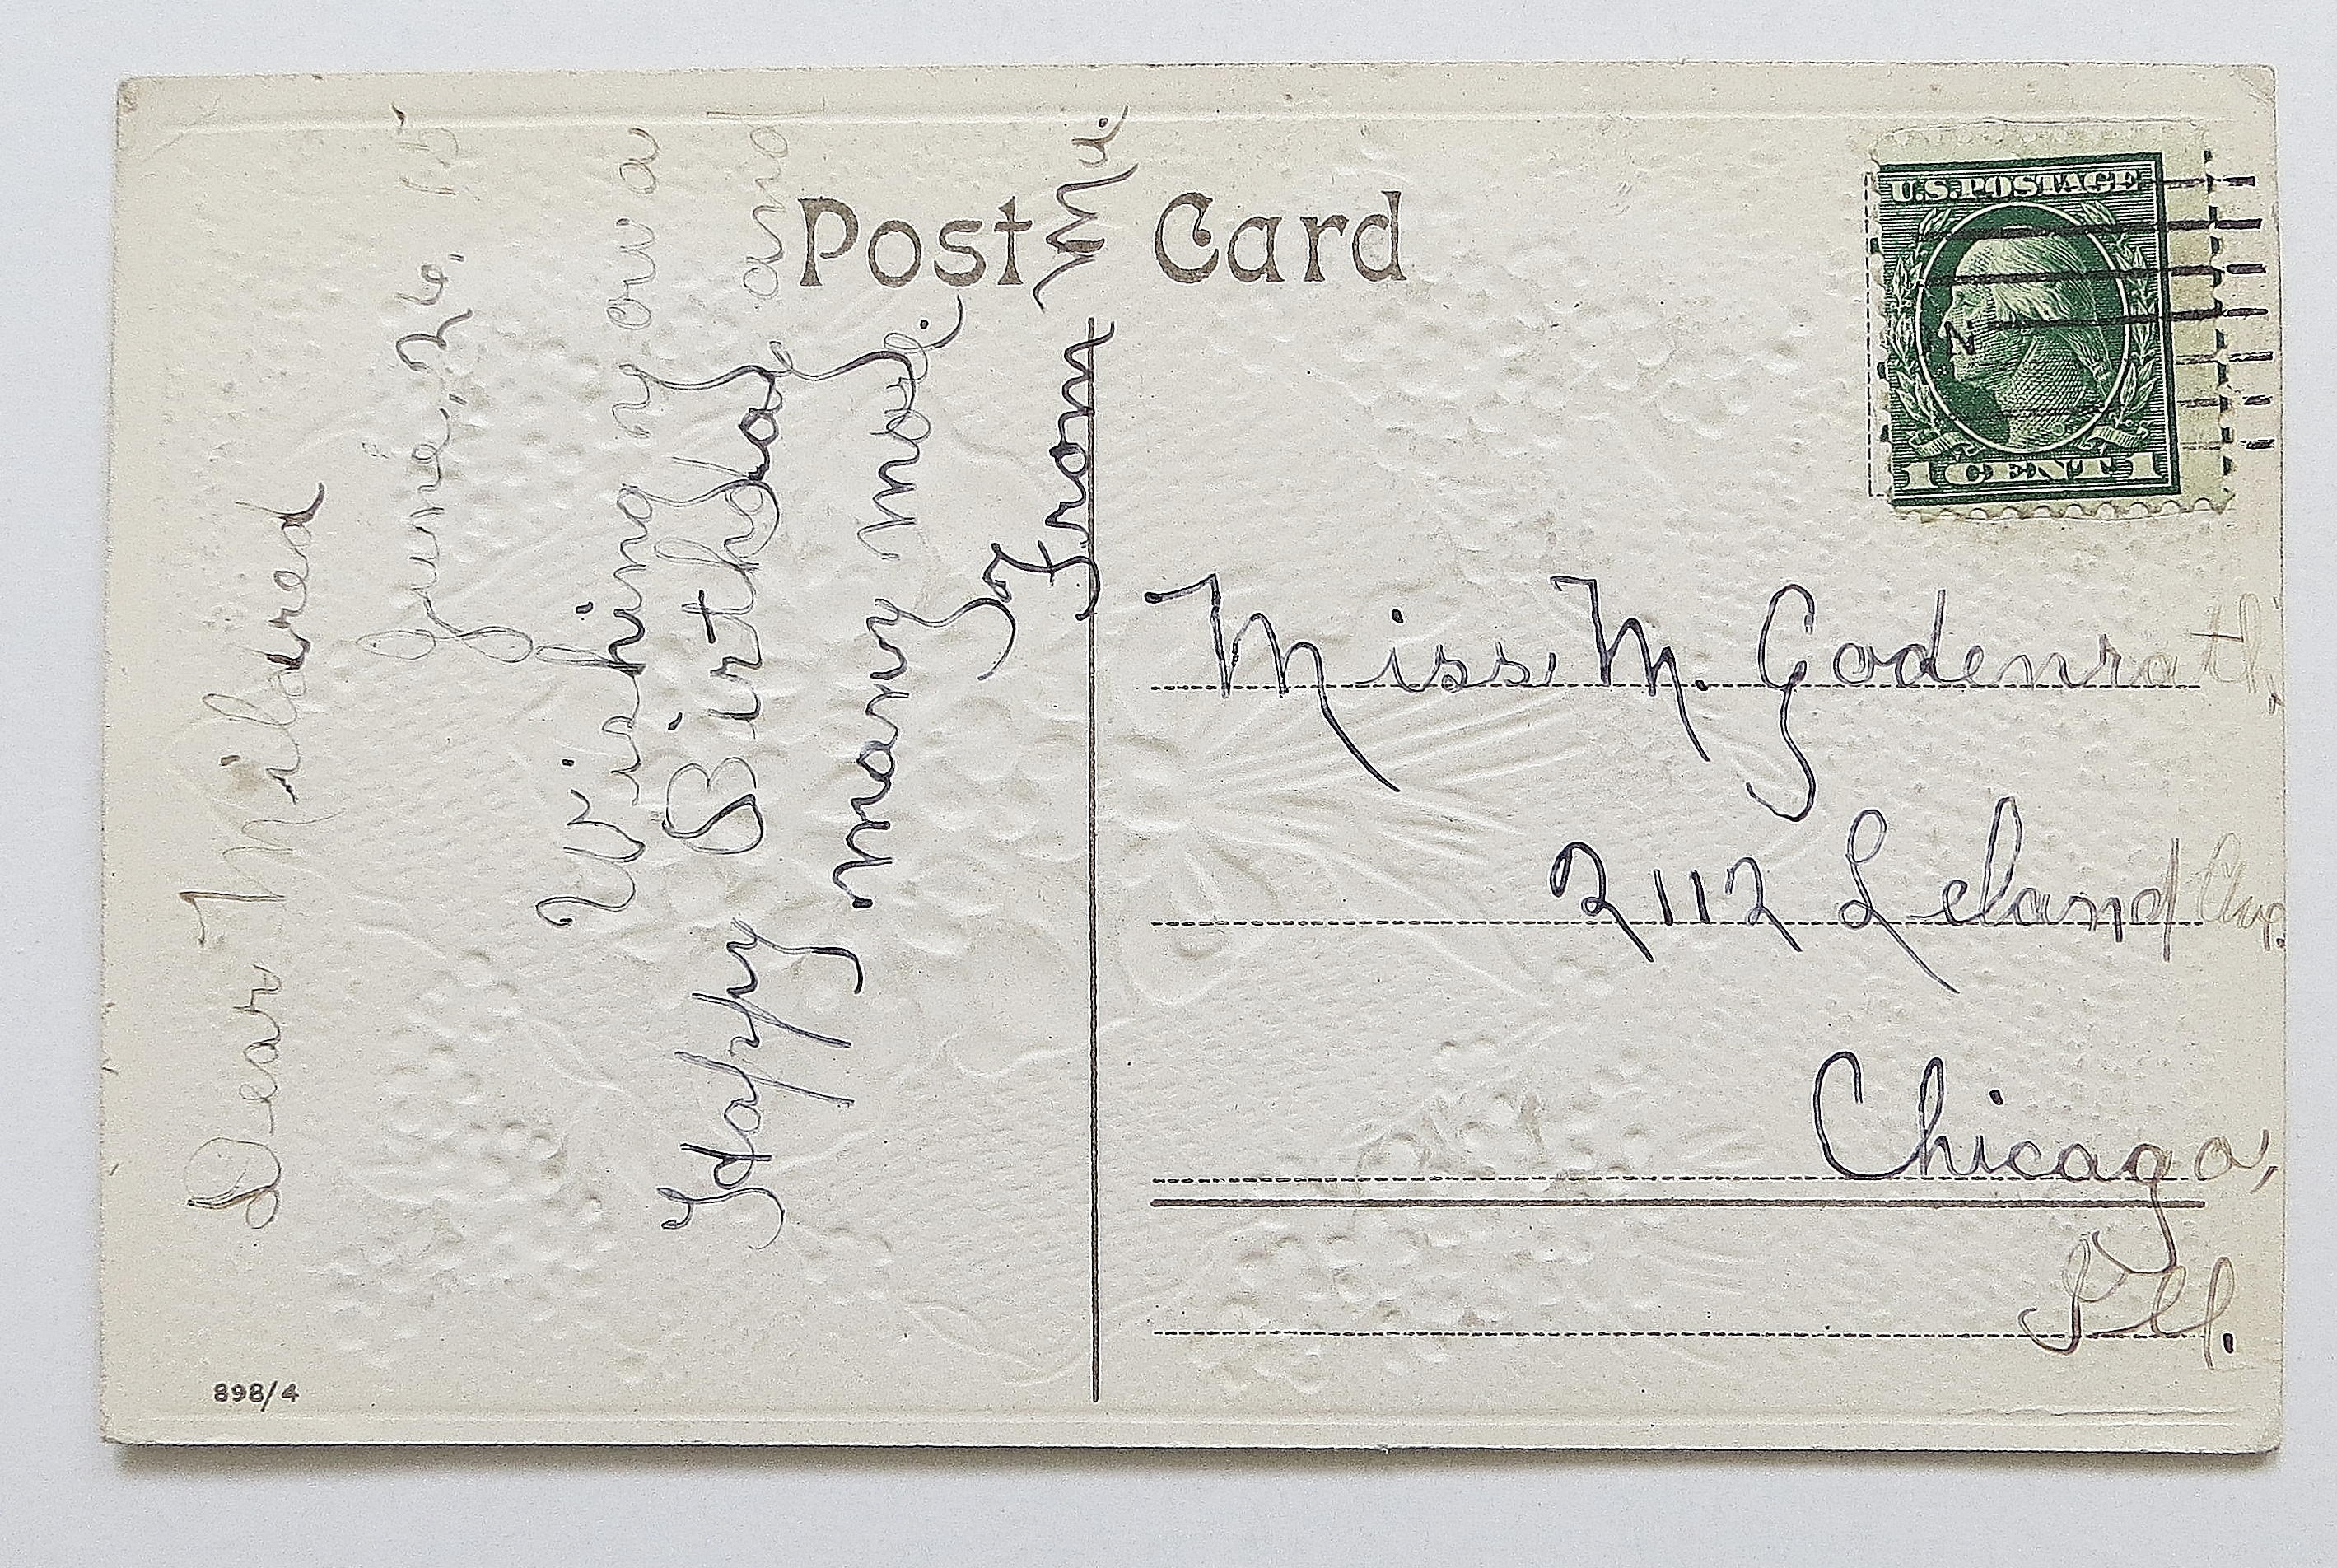 Post Card
U.S. POSTAGE
1 CENT 1
Dear Mildred
June, 26, 15
Wishing you a
Happy Birthday and
many more.
From Mu.
Miss M. Godenrath,
2112 Leland Ave.
Chicago,
Ill.
898/4